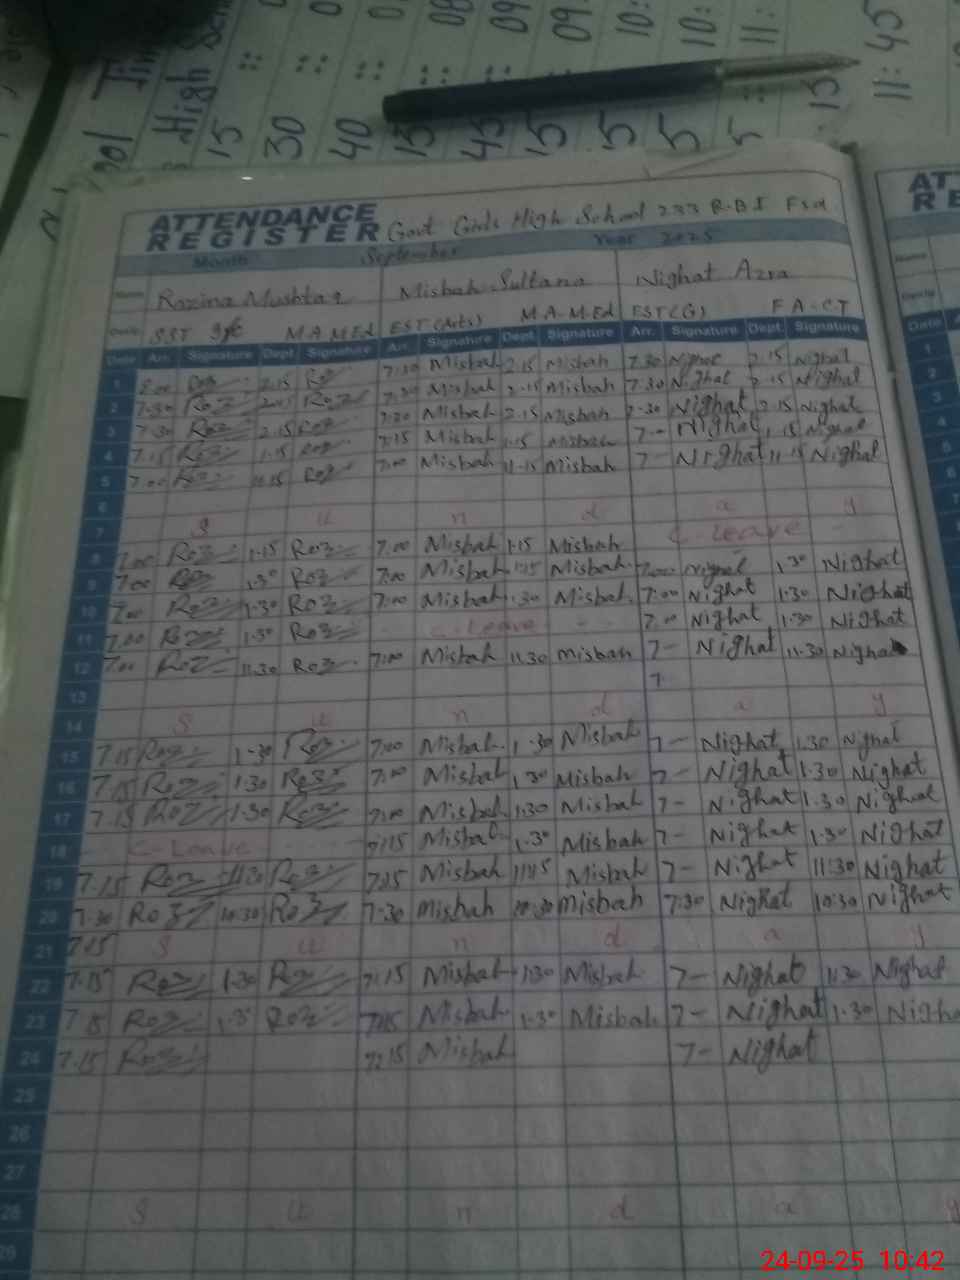 ATTENDANCE
REGISTER Govt Girls High School 233 R-B I Fsd
Month September Year 2025
Name Rozina Mushtaq Misbah Sultana Nighat Azra
SST M.A M.Ed EST (Arts) M.A-M.Ed EST(G) F A-CT
Date Arr. Signature Dept Signature Arr. Signature Dept Signature Arr. Signature Dept. Signature
1 8.00 Roz 2.15 Roz 7:30 Misbah 2.15 Misbah 7.30 Nighat 2.15 Nighat
2 7.30 Roz 2.15 Roz 7:30 Misbah 2.15 Misbah 7.30 Nighat 2.15 Nighat
3 7.30 Roz 2.15 Roz 7:30 Misbah 2.15 Misbah 7.30 Nighat 2.15 Nighat
4 7.15 Roz 1.15 Roz 7:15 Misbah 1.15 Misbah 7- Nighat 1.15 Nighat
5 7.00 Roz 11.15 Roz 7:00 Misbah 11.15 Misbah 7- Nighat 11.15 Nighat
6
7 S u n d a y
8 7.00 Roz 1.15 Roz 7.00 Misbah 1.15 Misbah C-Leave
9 7.00 Roz 1.30 Roz 7:00 Misbah Misbah 7.00 Nighat 1.30 Nighat
10 7.00 Roz 1.30 Roz 7:00 Misbah 1.30 Misbah 7:00 Nighat 1.30 Nighat
11 7.00 Roz 1.30 Roz C-Leave 7.00 Nighat 1.30 Nighat
12 7.00 Roz 11.30 Roz 7:00 Misbah 11.30 Misbah 7- Nighat 11.30 Nighat
13 7
14 S u n d a y
15 7.15 Roz 1.30 Roz 7:00 Misbah 1.30 Misbah 7- Nighat 1.30 Nighat
16 7.15 Roz 1.30 Roz 7:00 Misbah 1.30 Misbah 7- Nighat 1.30 Nighat
17 7.15 Roz 1.30 Roz 7:00 Misbah 1.30 Misbah 7- Nighat 1.30 Nighat
18 C-Leave 7:15 Misbah 1.30 Misbah 7- Nighat 1.30 Nighat
19 7.15 Roz 11.30 Roz 7:15 Misbah 11:15 Misbah 7- Nighat 11:30 Nighat
20 7:30 Roz 10:30 Roz 7:30 Misbah 10:30 Misbah 7:30 Nighat 10:30 Nighat
21 7.15 S u n d a y
22 7.15 Roz 1.30 Roz 7:15 Misbah 1:30 Misbah 7- Nighat 1:30 Nighat
23 7.15 Roz 1.30 Roz 7:15 Misbah 1.30 Misbah 7- Nighat 1.30 Nigha
24 7.15 Roz 7:15 Misbah 7- Nighat
25
26
27
28 S u n d a y
29
24-09-25 10:42